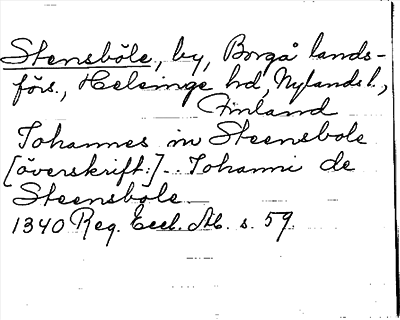 Stensböle, by, Borgå lands-
förs., Helsinge hd, Nylands l.,
Finland
Johannes in Steensbole
[överskrift:] .. Johanni de
Steensbole
1340 Reg. Eccl. Ab. s. 59